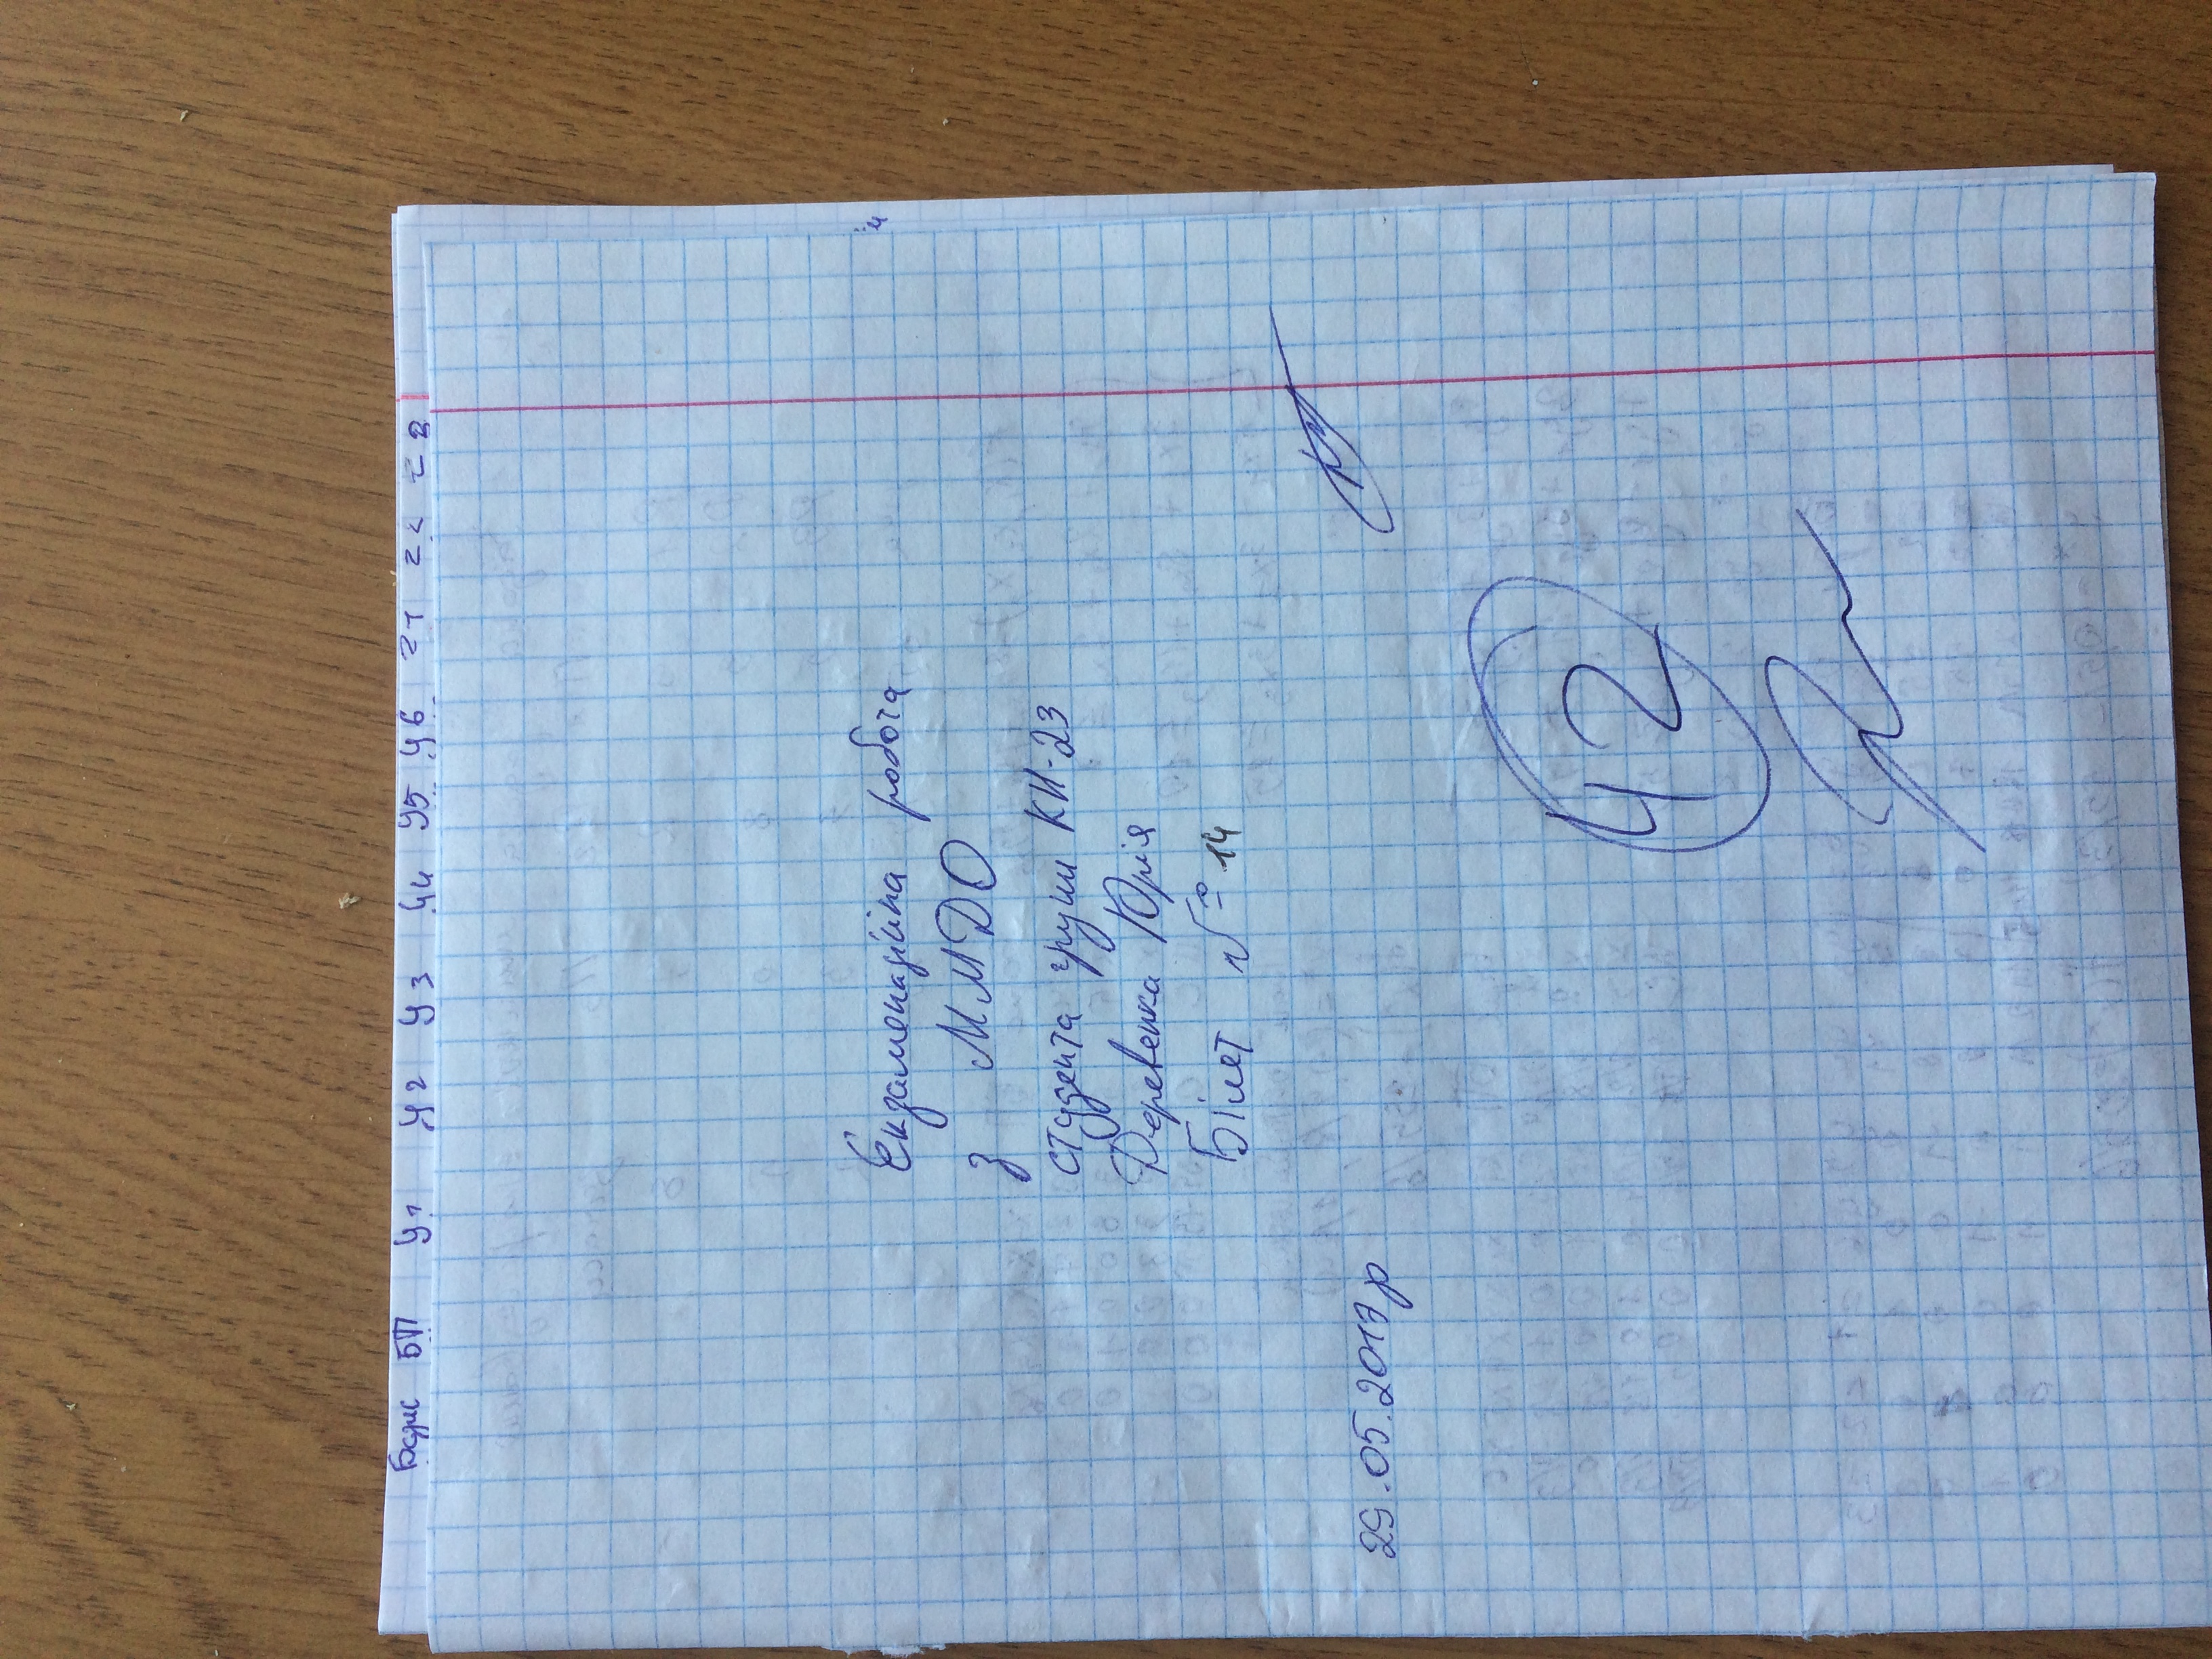 Базис БП У1 У2 У3 У4 У5 У6 Z1
Екзаменаційна робота
з ММДО
студента групи КН-23
Деревенка Юрія
Білет № 14
29.05.2017р
42